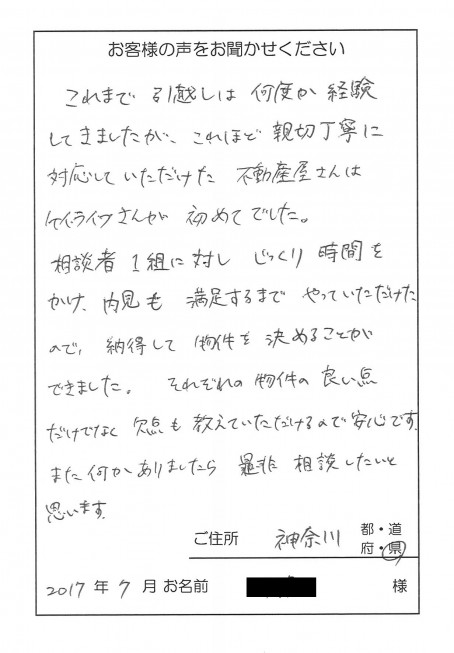 お客様の声をお聞かせください
これまで 引越しは 何度か 経験
してきましたが、これほど 親切丁寧に
対応していただけた 不動産屋さんは
ケイ・ライフさんが 初めてでした。
相談者 1組に対し じっくり 時間を
かけ、内見も 満足するまで やっていただけた
ので、納得して 物件を 決めることが
できました。 それぞれの 物件の 良い点
だけでなく 欠点も 教えていただけるので安心です。
また何かありましたら 是非 相談したいと
思います。
ご住所 神奈川 都・道
府・県
2017 年 7 月 お名前 様